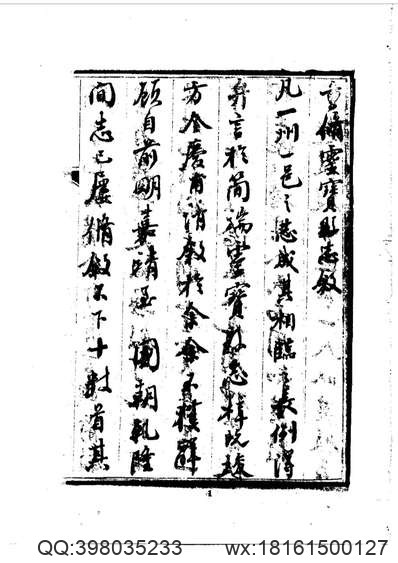 重脩靈寶縣志敘
凡一州一邑之志成其相臨之長例得
弁言於簡端靈寶縣志梓既竣
方令慶甫請敘於余余不獲辭
顧自前明嘉靖至國朝乾隆
間志已屢脩敘不下十數首其
1
QQ:398035233 wx:18161500127